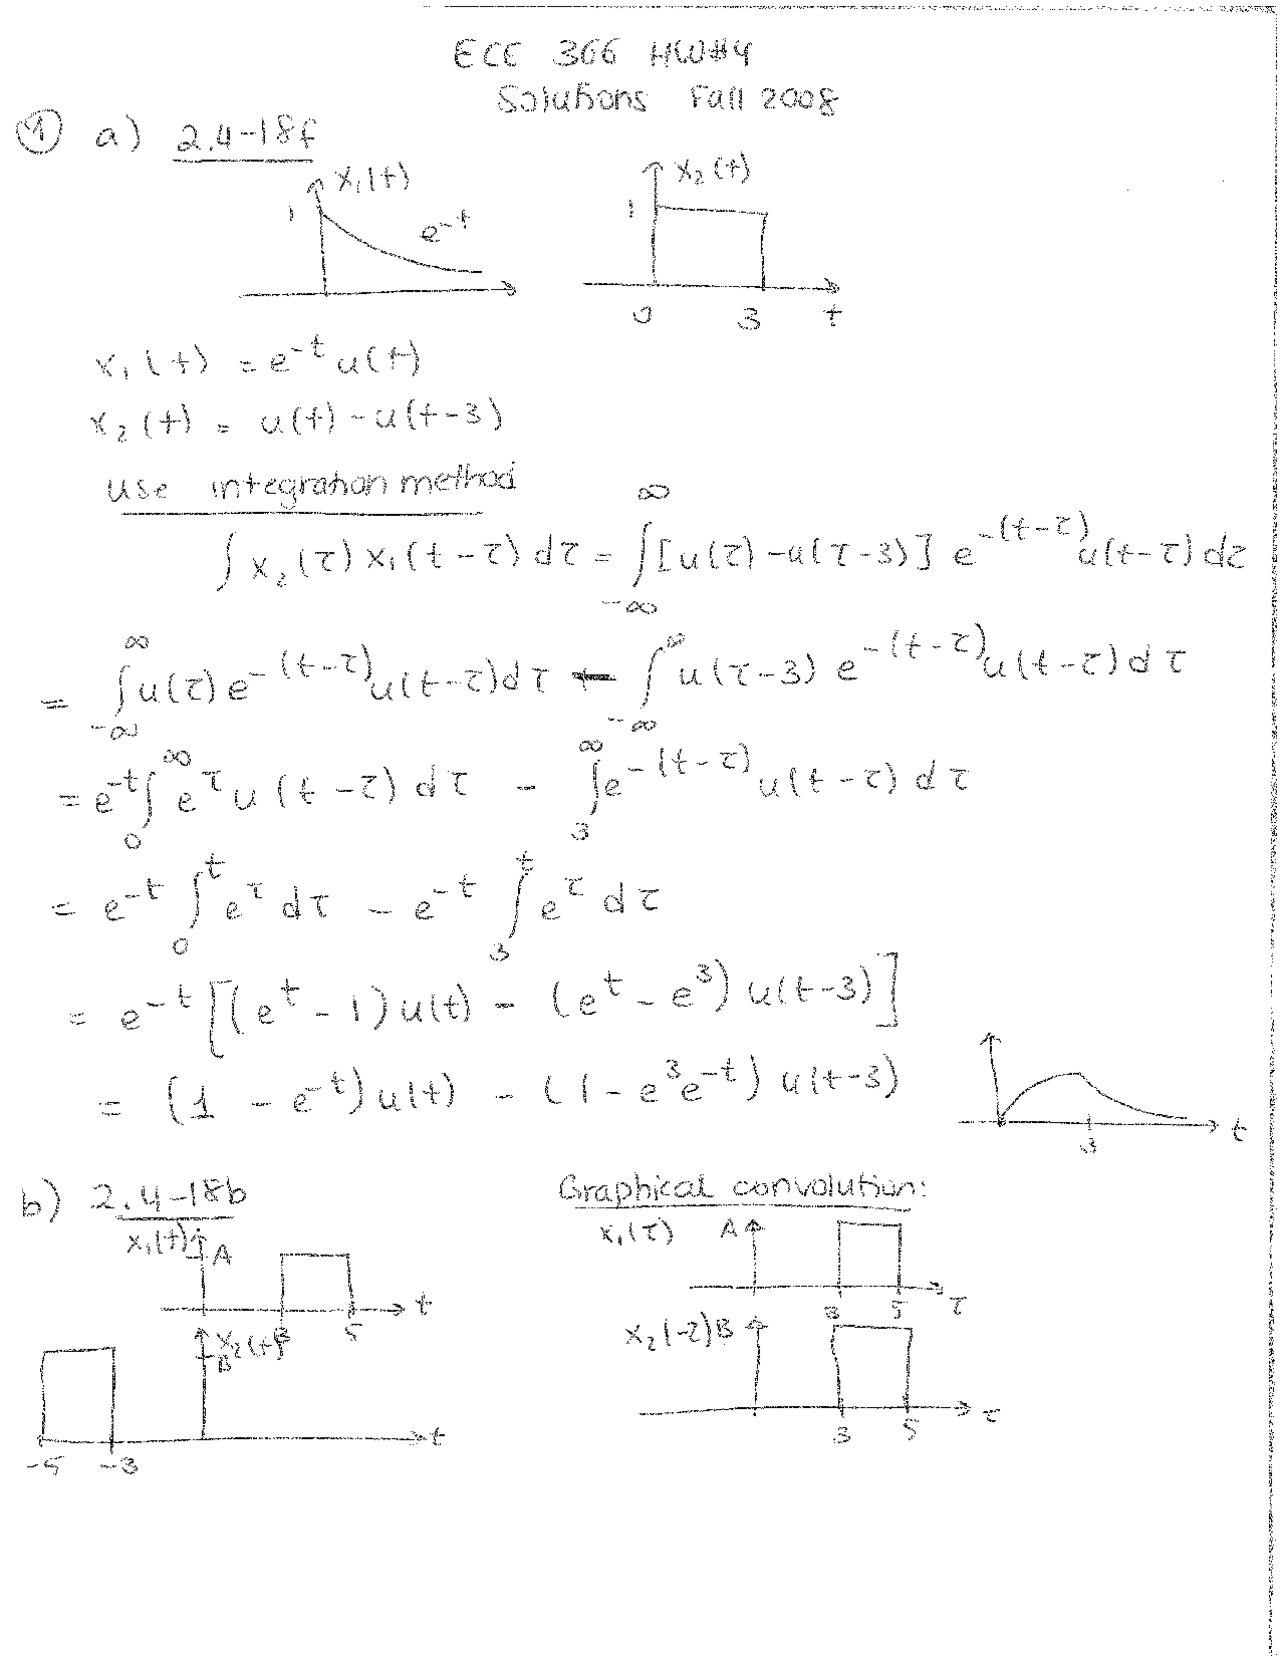 ECE 366 HW#4
Solutions Fall 2008
① a) 2.4-18f
x₁(t)
1
e^-t
x₂(t)
1
0 3 t
x₁(t) = e^-t u(t)
x₂(t) = u(t) - u(t-3)
use integration method
∫ x₂(τ) x₁(t-τ) dτ = ∫_-∞^∞ [u(τ) - u(τ-3)] e^-(t-τ) u(t-τ) dτ
= ∫_-∞^∞ u(τ) e^-(t-τ) u(t-τ) dτ - ∫_-∞^∞ u(τ-3) e^-(t-τ) u(t-τ) dτ
= e^-t ∫_0^∞ e^τ u(t-τ) dτ - ∫_3^∞ e^-(t-τ) u(t-τ) dτ
= e^-t ∫_0^t e^τ dτ - e^-t ∫_3^t e^τ dτ
= e^-t [(e^t - 1) u(t) - (e^t - e^3) u(t-3)]
= (1 - e^-t) u(t) - (1 - e^3 e^-t) u(t-3)
3 t
b) 2.4-18b
x₁(t)
A
3 5 t
x₂(t)
B
-5 -3 t
Graphical convolution:
x₁(τ) A
3 5 τ
x₂(-τ) B
3 5 τ